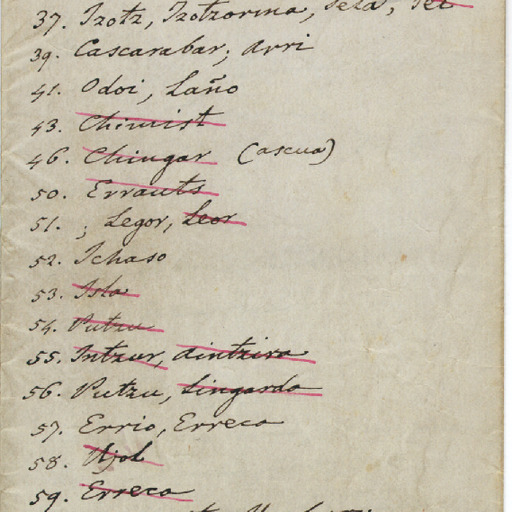 37. Izotz, Izotzorma, Tela, Tel
39. Cascarabar, Arri
41. Odoi, Laño
43. Chimist
46. Chingar (ascua)
50. Errauts
51. ; Legor, Leor
52. Ichaso
53. Isla
54. Putzu
55. Intzur, Aintzira
56. Putzu, Lingarda
57. Errio, Erreca
58. Ujol
59. Erreca